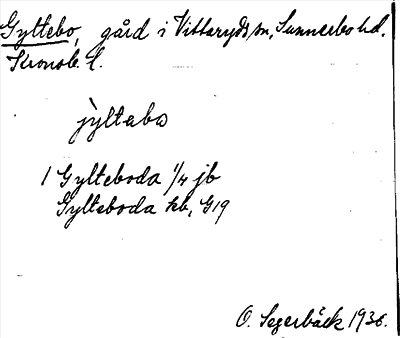 Gyltebo, gård i Vittaryds sn, Sunnerbo hd.
Kronob. l.
jỳltebo
1 Gylteboda 1/4 jb
Gylteboda kb, G19
O. Segerbäck 1936.